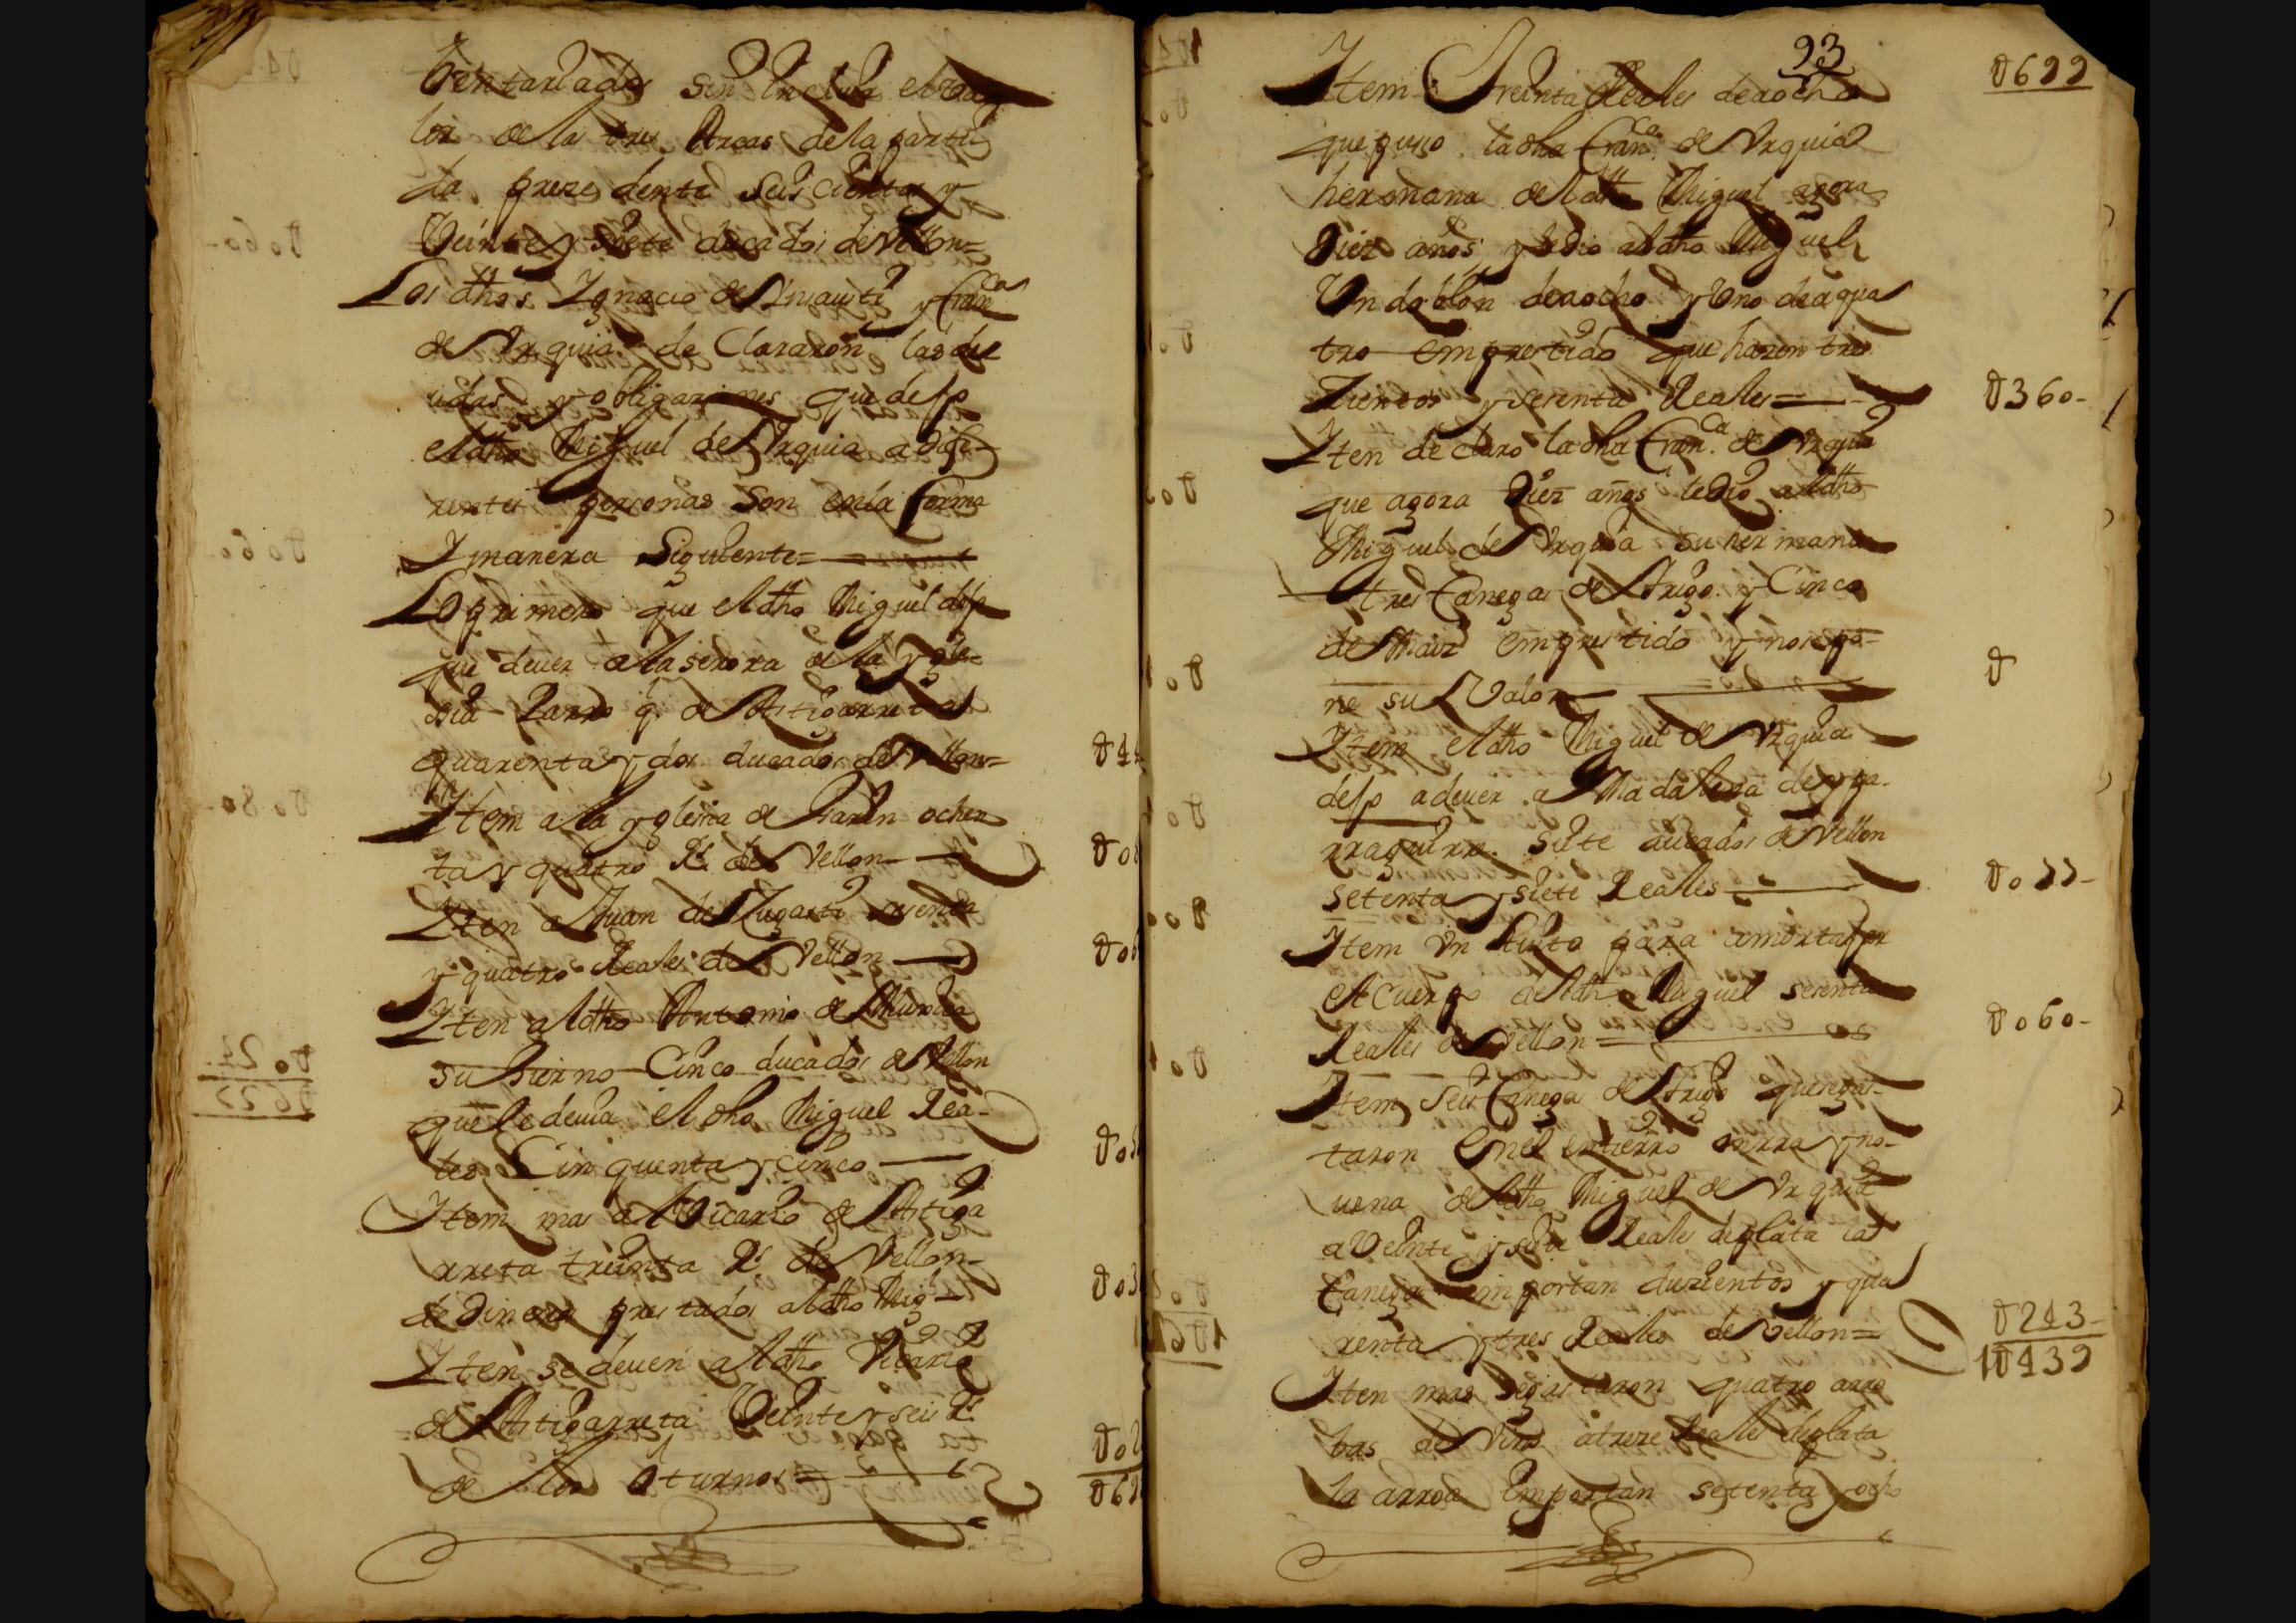 bentariados sin Incluir el va
lor de las tres Arcas de la parti
da preze dente Seis cientos y
Veinte y siete ducados de Vellon=
Los dhos Ignacio de y Fran.ca
de Vrquia de Clararon las de
udas y obligaziones que desp
el dho Miguel de Vrquia a dife-
rentes personas Son en la forma
Y manera Siguiente=
Lo primero que el dho Miguel desp
que deuer a la serora de la ygle-
sia Parro q. de Astigarreta
quarenta y dos ducados de Vellon=
Item a la yglesia de ochen
ta y quatro Rs. de Vellon
Iten a Juan de Zugasti sesenta
y quatro Reales de Vellon
Iten al dho Antonio de
su Hierno Cinco ducados de Vellon
que le deuia el dho Miguel Rea-
les Cinquenta y cinco
Item mas al Vicario de Astiga
rreta treinta Rs. de Vellon-
de Dineros prestados al dho Mig
Iten se deuen al dho Vicario
de Astigarreta Veinte y seis Rs.
de los oturnos=
93
Item Treinta Reales de aocho
que puso la dha Fran.ca de Vrquia
hermana del dho Miguel agora
Diez años y le dio al dho Miguel
Un doblon de aocho y Uno de aqua
tro emprestido que hazen tres
Zientos y sesenta Reales=
Iten declaro la dha Fran.ca de Vrquia
que agora Diez años le dio al dho
Miguel de Vrquia su hermano
tres fanegas de Trigo y Cinco
de Maiz emprestido y nose po-
ne su Valor
Item el dho Miguel de Vrquia
desp a deuer a Madalena de yza-
rraguirre siete ducados de Vellon
setenta y siete Reales
Item Vn Auito para amortajar
el Cuerpo del dho Miguel sesenta
Reales de Vellon=
Item Seis fanegas de Trigo que se gas-
taron En el entierro onrra y no-
uena del dho Miguel de Vrquia
a Veinte y siete Reales de plata la
fanega importan duzientos y qua
renta y tres Reales de Vellon=
Iten mas se gastaron quatro arro
bas de Vino atreze Reales de plata
la arroa Importan setenta y ocho
U699
U360-
U
Uo77-
Uo60-
U243-
1U439